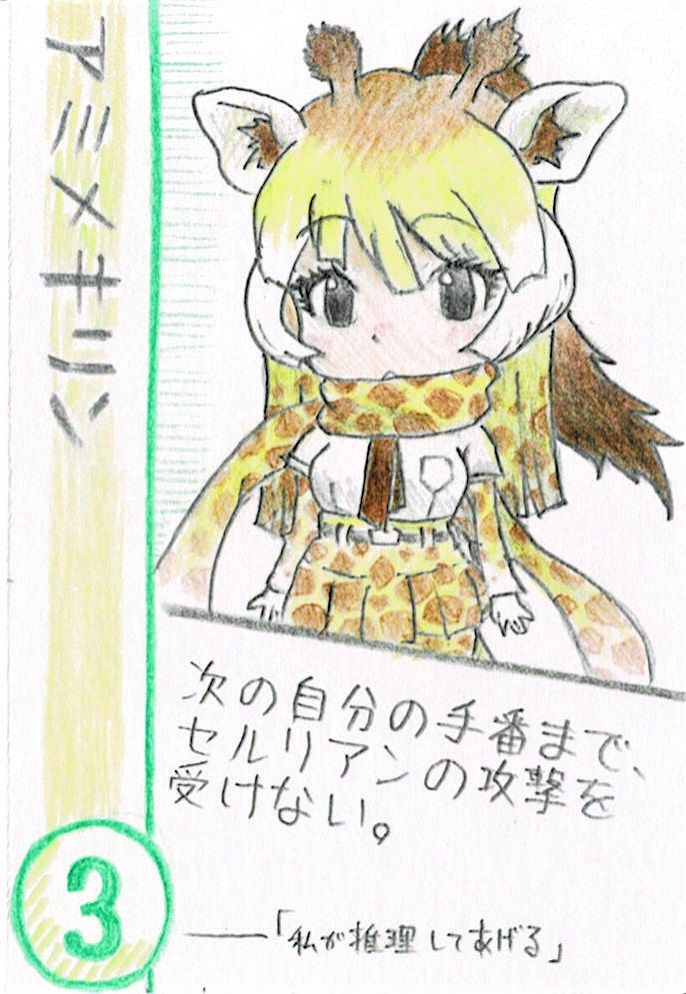 アミメキリン
次の自分の手番まで、
セルリアンの攻撃を
受けない。
——「私が推理してあげる」
3